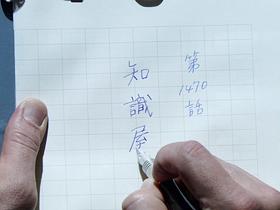 第1470話
知識屋